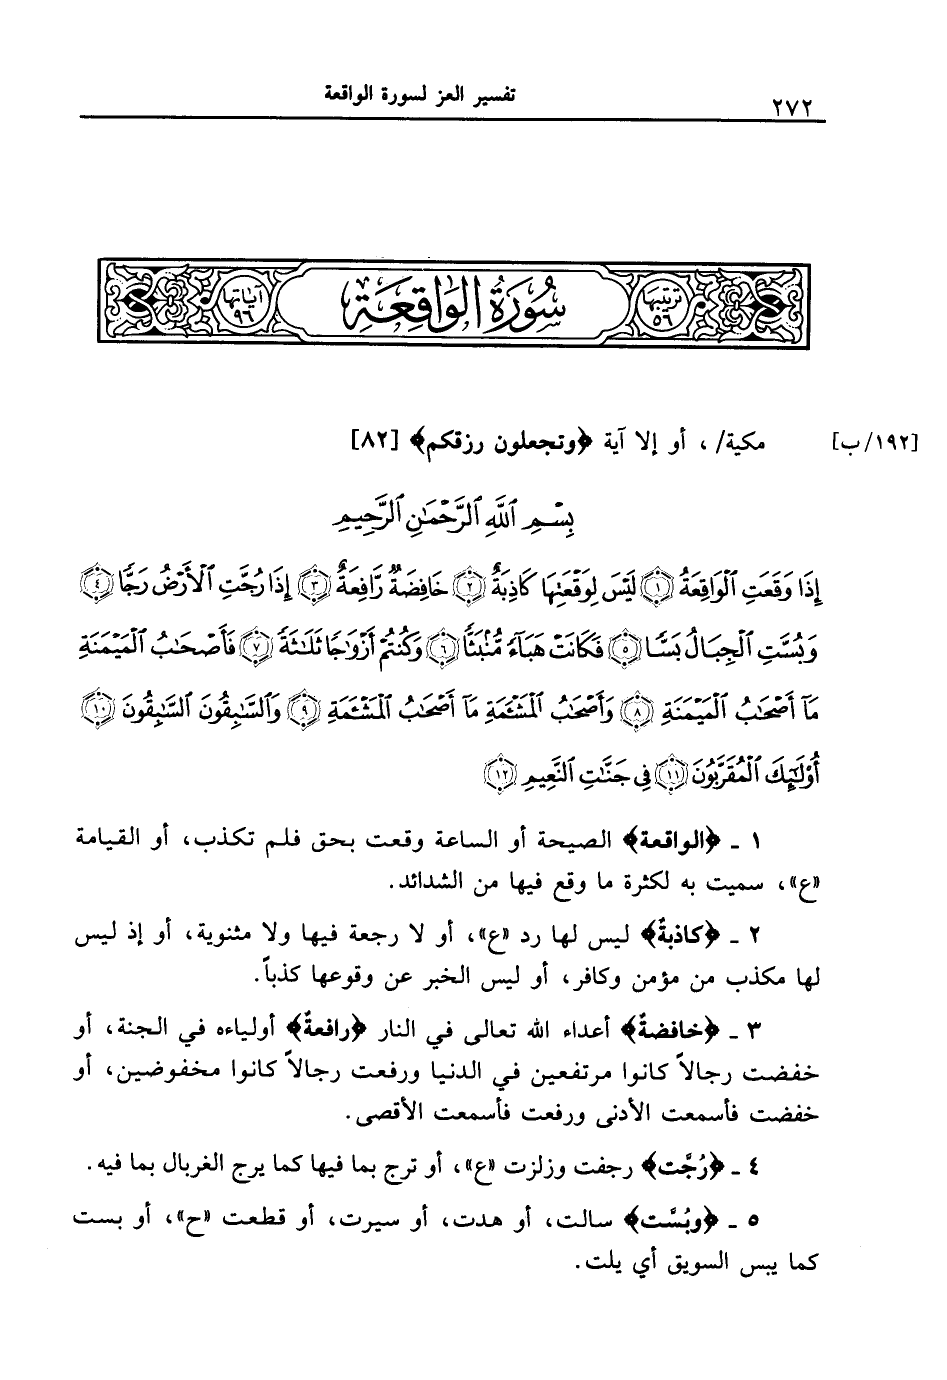 ٢٧٢ تفسير العز لسورة الواقعة
ترتيبها ٥٦ سُورَةُ الوَاقِعَةِ آياتها ٩٦
[١٩٢/ ب] مكية/ ، أو إلا آية ﴿وتجعلون رزقكم﴾ [٨٢]
بِسْمِ ٱللَّهِ ٱلرَّحْمَٰنِ ٱلرَّحِيمِ
إِذَا وَقَعَتِ ٱلْوَاقِعَةُ ١ لَيْسَ لِوَقْعَتِهَا كَاذِبَةٌ ٢ خَافِضَةٌ رَّافِعَةٌ ٣ إِذَا رُجَّتِ ٱلْأَرْضُ رَجًّا ٤
وَبُسَّتِ ٱلْجِبَالُ بَسًّا ٥ فَكَانَتْ هَبَآءً مُّنۢبَثًّا ٦ وَكُنتُمْ أَزْوَٰجًا ثَلَٰثَةً ٧ فَأَصْحَٰبُ ٱلْمَيْمَنَةِ
مَآ أَصْحَٰبُ ٱلْمَيْمَنَةِ ٨ وَأَصْحَٰبُ ٱلْمَشْـَٔمَةِ مَآ أَصْحَٰبُ ٱلْمَشْـَٔمَةِ ٩ وَٱلسَّٰبِقُونَ ٱلسَّٰبِقُونَ ١٠
أُو۟لَٰٓئِكَ ٱلْمُقَرَّبُونَ ١١ فِى جَنَّٰتِ ٱلنَّعِيمِ ١٢
١ ـ ﴿الواقعة﴾ الصيحة أو الساعة وقعت بحق فلم تكذب، أو القيامة
«ع»، سميت به لكثرة ما وقع فيها من الشدائد.
٢ ـ ﴿كاذبةٌ﴾ ليس لها رد «ع»، أو لا رجعة فيها ولا مثنوية، أو إذ ليس
لها مكذب من مؤمن وكافر، أو ليس الخبر عن وقوعها كذباً.
٣ ـ ﴿خافضةٌ﴾ أعداء الله تعالى في النار ﴿رافعةٌ﴾ أولياءه في الجنة، أو
خفضت رجالاً كانوا مرتفعين في الدنيا ورفعت رجالاً كانوا مخفوضين، أو
خفضت فأسمعت الأدنى ورفعت فأسمعت الأقصى.
٤ ـ ﴿رُجَّت﴾ رجفت وزلزت «ع»، أو ترج بما فيها كما يرج الغربال بما فيه.
٥ ـ ﴿وبُسَّت﴾ سالت، أو هدت، أو سيرت، أو قطعت «ح»، أو بست
كما يبس السويق أي يلت.